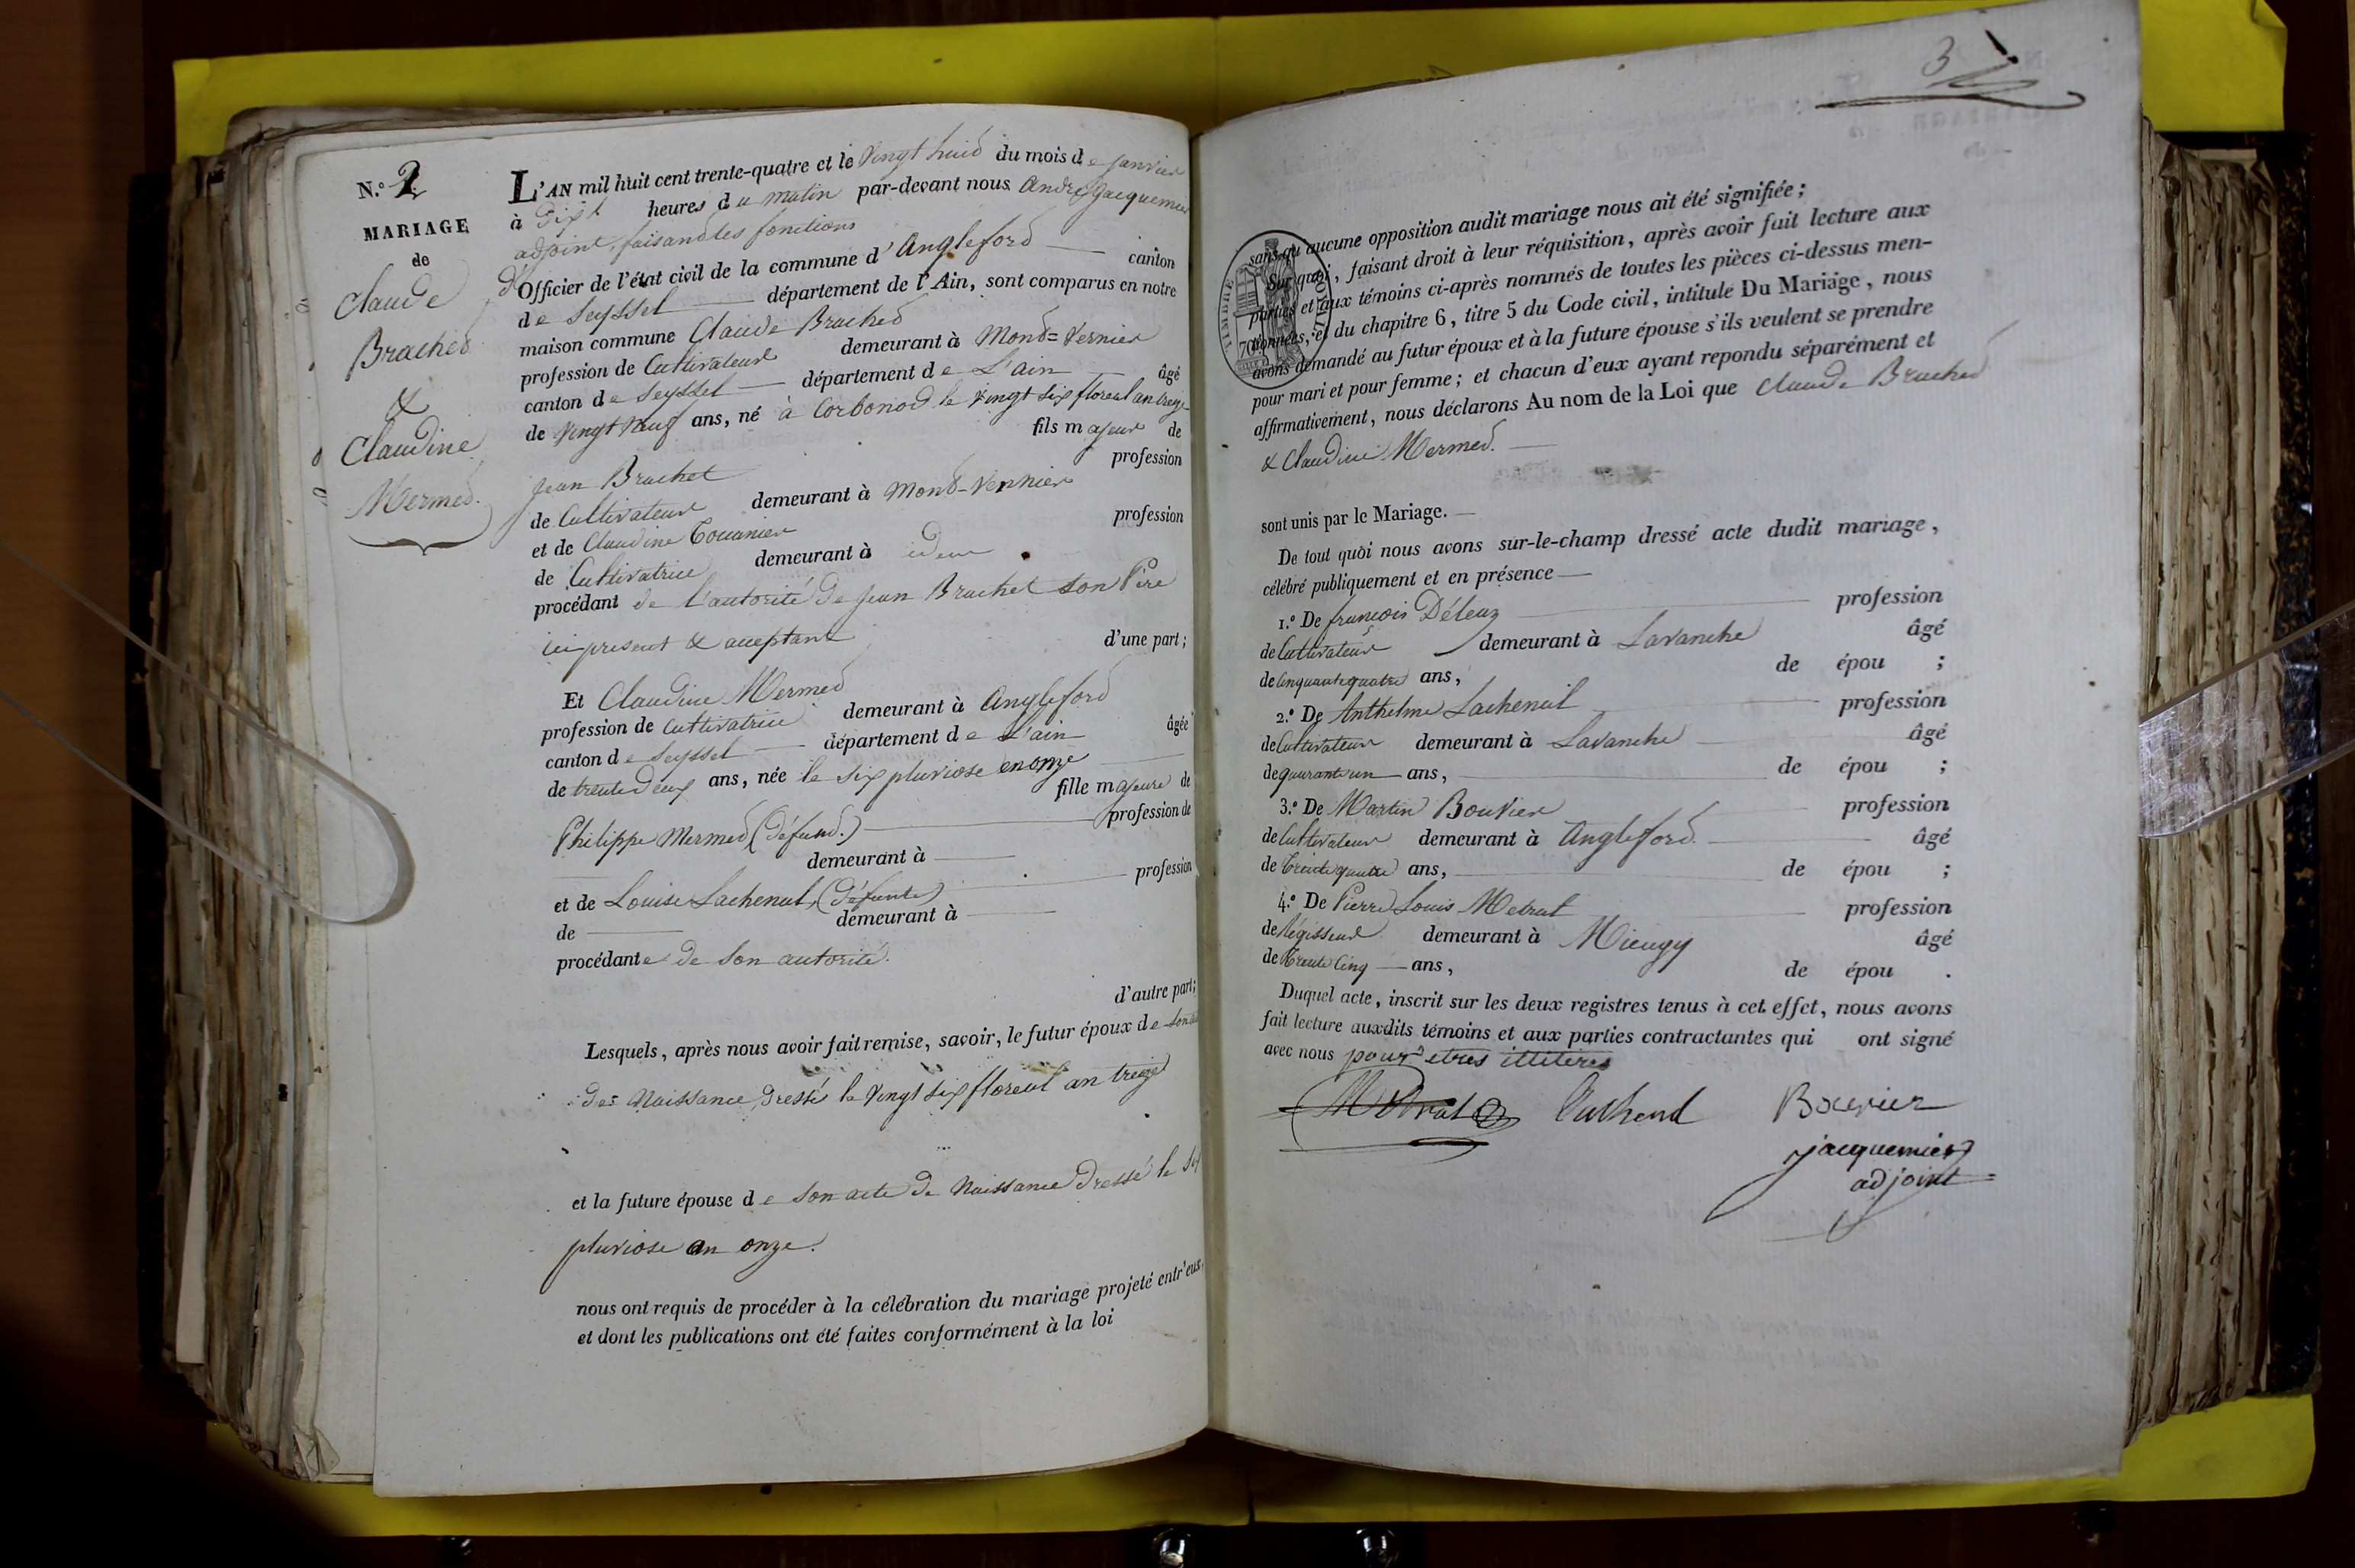 N.° 2
MARIAGE
de
Claude
Brached
&
Claudine
Mermed.
L'AN mil huit cent trente-quatre et le Vingt huid du mois de janvier
à dix heures du matin par-devant nous André Jacquemier
adjoint, faisand les fonctions
d'Officier de l'état civil de la commune d'Angleford canton
de Seyssel département de l'Ain, sont comparus en notre
maison commune Claude Brached
profession de Cultivateur demeurant à Mond=Vernier
canton de Seyssel département de L'ain âgé
de Vingt Neuf ans, né à Corbonod le Vingt six floreal an treize
fils majeur de
Jean Brachet profession
de Cultivateur demeurant à Mond-Vernier
et de Claudine profession
de Cultivatrice demeurant à idem
procédant de l'autorité de Jean Brachet son Père
ici present & acceptant d'une part;
Et Claudine Mermed
profession de Cultivatrice demeurant à Angleford
canton de Seyssel département de L'ain âgée
de trente deux ans, née le six pluviose en onze
fille majeure de
Philippe Mermed (défund.) profession de
demeurant à
et de Louise Lachenal, (défunte) profession
de demeurant à
procédante de son autorité.
d'autre part;
Lesquels, après nous avoir fait remise, savoir, le futur époux de son
de Naissance, dressé le Vingt six floreal an treize
et la future épouse de son acte de Naissance dressé le six
pluviose an onze.
nous ont requis de procéder à la célébration du mariage projeté entr'eux,
et dont les publications ont été faites conformément à la loi
3
sans qu'aucune opposition audit mariage nous ait été signifiée;
Sur quoi, faisant droit à leur réquisition, après avoir fait lecture aux
parties et aux témoins ci-après nommés de toutes les pièces ci-dessus men-
tionnées, et du chapitre 6, titre 5 du Code civil, intitulé Du Mariage, nous
avons demandé au futur époux et à la future épouse s'ils veulent se prendre
pour mari et pour femme; et chacun d'eux ayant repondu séparément et
affirmativement, nous déclarons Au nom de la Loi que Claude Brached
& Claudine Mermed.
TIMBRE ROYAL
70
sont unis par le Mariage.
De tout quoi nous avons sur-le-champ dressé acte dudit mariage,
célébré publiquement et en présence
1.° De françois Déleaz profession
de Cultivateur demeurant à Lavanche âgé
de Cinquante quatre ans, de épou ;
2.° De Anthelme Lachenal profession
de Cultivateur demeurant à Lavanche âgé
de quarante un ans, de épou ;
3.° De Martin Bouvier profession
de Cultivateur demeurant à Angleford. âgé
de Trente quatre ans, de épou ;
4.° De Pierre Louis Metral profession
de Régisseur demeurant à Mieugy âgé
de Trente Cinq ans, de épou .
Duquel acte, inscrit sur les deux registres tenus à cet effet, nous avons
fait lecture auxdits témoins et aux parties contractantes qui ont signé
avec nous pour etres illiteres
Métral Lachenal Bouvier
jacquemier
adjoint